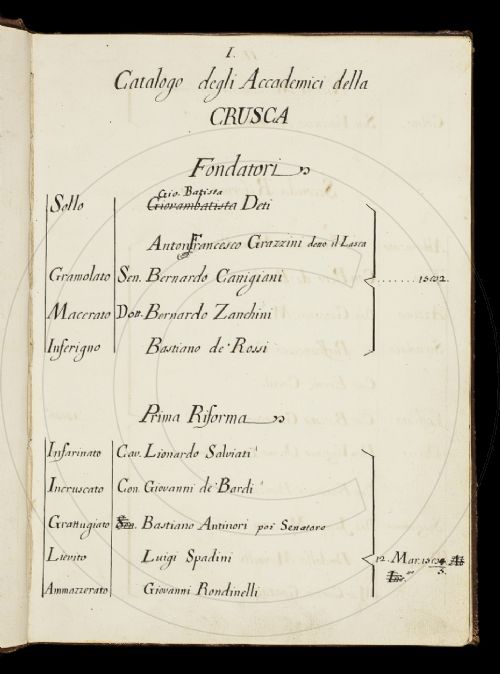 I.
Catalogo degli Accademici della
CRUSCA
Fondatori
Gio. Batista
Sollo Giovambatista Deti
Antonfrancesco Grazzini detto il Lasca
Gramolato Sen. Bernardo Canigiani
Macerato Dott. Bernardo Zanchini
Inferigno Bastiano de' Rossi
Prima Riforma
Infarinato Cav. Lionardo Salviati
Incruscato Con. Giovanni de' Bardi
Grattugiato Sen. Bastiano Antinori poi Senatore
Lievito Luigi Spadini
12. Mar.
Ammazzerato Giovanni Rondinelli